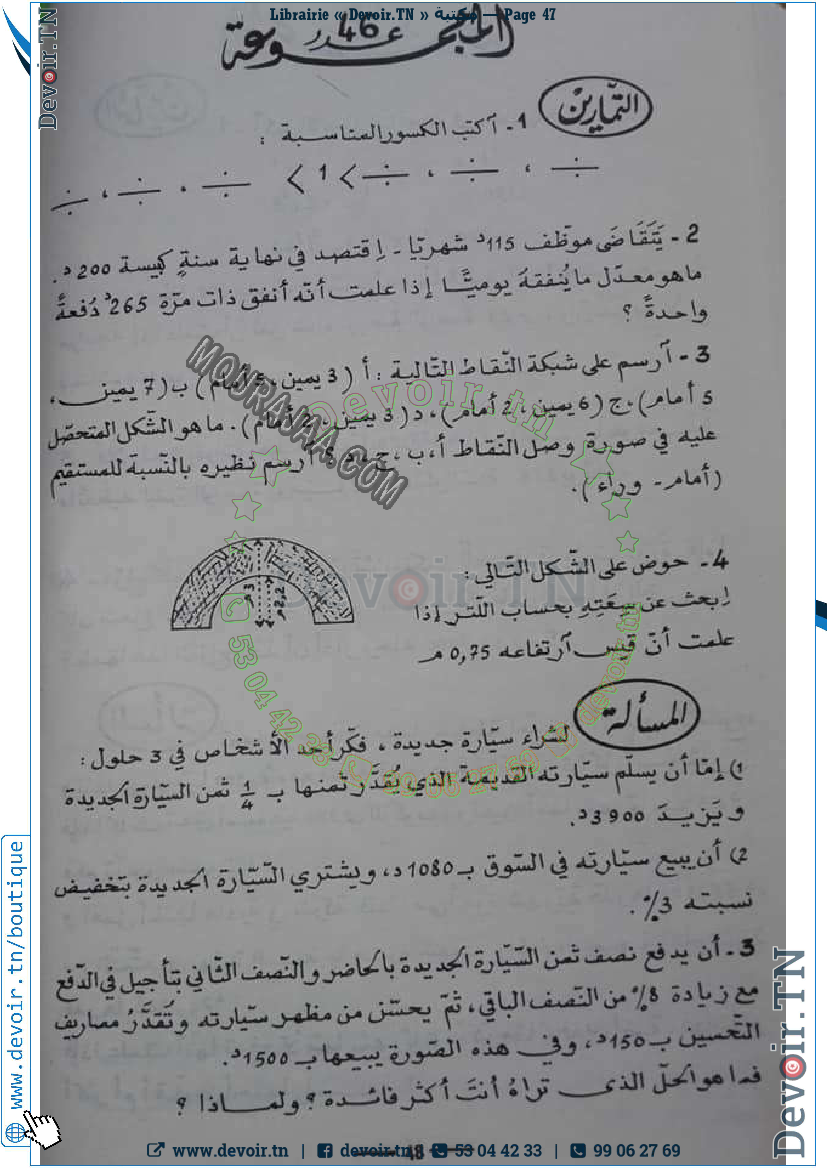 Librairie « Devoir.TN » مكتبة — Page 47
المجموعة عدد 46
التمارين
1- اكتب الكسور المناسبة :
÷ ، ÷ ، ÷ < 1 < ÷ ، ÷ ، ÷
2- يَتَقَاضَى موظّف 115د شهريًا - اقتصد في نهاية سنةٍ كبيسة 200د.
ما هو معدّل ما يُنفقهَ يوميًّا إذا علمت أنّه أنفق ذات مرّة 265د دُفعةً
واحدةً ؟
3- آرسم على شبكة النّقاط التّالية : أ (3 يمين، 5 أمام) ب (7 يمين،
5 أمام)، ج (6 يمين، 2 أمام)، د (3 يمين، 2 أمام). ما هو الشّكل المتحصّل
عليه في صورة وصل النّقاط أ، ب، ج، د ؟ آرسم نظيره بالنّسبة للمستقيم
(أمام - وراء).
4- حوض على الشّكل التّالي :
إبحث عن سِعَتِهِ بحساب اللّتر إذا
علمت أنّ قيس آرتفاعه 0,75 م
3م
2,2م
المسألة
لشراء سيّارة جديدة، فكّر أحد الأشخاص في 3 حلول :
1) إمّا أن يسلّم سيّارته القديمة الذي يُقدَّر ثمنها بـ 1/4 ثمن السيّارة الجديدة
و يَزيدَ 3900د.
2) أن يبيع سيّارته في السّوق بـ 1080د، ويشتري السّيّارة الجديدة بتخفيض
نسبته 3%.
3- أن يدفع نصف ثمن السّيّارة الجديدة بالحاضر والنّصف الثّاني بتأجيل في الدّفع
مع زيادة 8% من النّصف الباقي، ثمّ يحسّن من مظهر سيّارته وتُقدَّرُ مصاريف
التّحسين بـ 150د، وفي هذه الصّورة يبيعها بـ 1500د.
فما هو الحلّ الذي تراهُ أنتَ أكثر فائدة ؟ ولماذا ؟
48
MOURAJAA.COM
Devoir.tn
Devoir.TN
53 04 42 33
99 06 27 69
devoir.tn
Devoir.TN
www.devoir.tn/boutique
Devoir.TN
www.devoir.tn | devoir.tn | 53 04 42 33 | 99 06 27 69